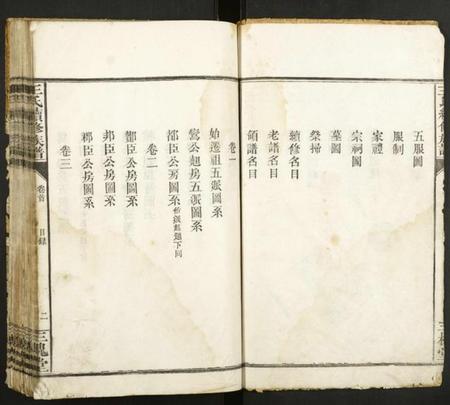 五服圖
服制
家禮
宗祠圖
墓圖
祭掃
續修名目
老譜名目
領譜名目
卷一
始遷祖五派圖系
鸞公翹房五派圖系
邵臣公房圖系
卷二
鄷臣公房圖系
邦臣公房圖系
卷三
王氏續修族譜
卷首
目錄
二
三槐堂